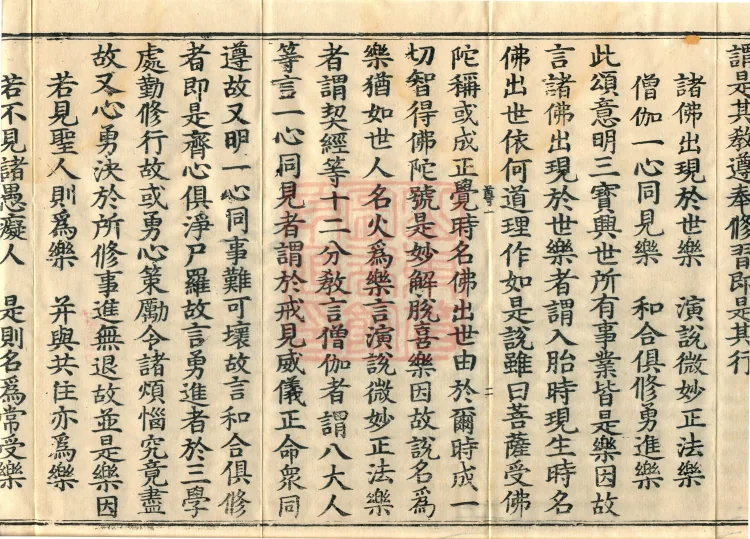 謂是其教遵奉修習即是其行
諸佛出現於世樂　演說微妙正法樂
僧伽一心同見樂　和合俱修勇進樂
此頌意明三寶興世所有事業皆是樂因故
言諸佛出現於世樂者謂入胎時現生時名
佛出世依何道理作如是說雖曰菩薩受佛
尊一　二
陀稱或成正覺時名佛出世由於爾時成一
切智得佛陀號是妙解脫喜樂因故說名為
樂猶如世人名火為樂言演說微妙正法樂
者謂契經等十二分教言僧伽者謂八大人
等言一心同見者謂於戒見威儀正命衆同
遵故又明一心同事難可壞故言和合俱修
者即是齊心俱淨尸羅故言勇進者於三學
處勤修行故或勇心策勵令諸煩惱究竟盡
故又心勇決於所修事進無退故並是樂因
若見聖人則為樂　并與共住亦為樂
若不見諸愚癡人　是則名為常受樂